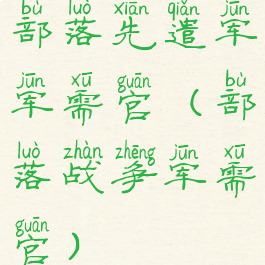 bù luò xiān qiǎn jūn
部落先遣军
jūn xū guān bù
军需官（部
luò zhàn zhēng jūn xū
落战争军需
guān
官）